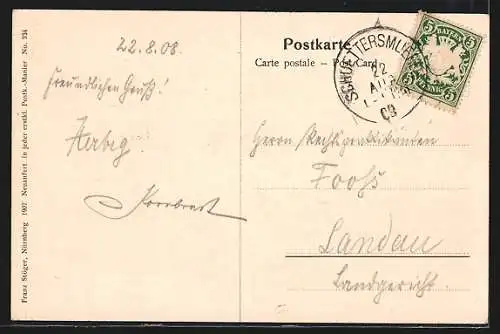 Franz Stöger, Nürnberg 1907 Neuanfert. in jeder erstkl. Postk.-Manier No. 234
22.8.08.
Freundlichen Gruß!
Postkarte
Carte postale – Post Card
SCHUETTERSMUEHLE
22
AUG
08
BAYERN
5 5
5 5
PFENNIG
Herrn Rechtspraktikanten
Landau
Landgericht.